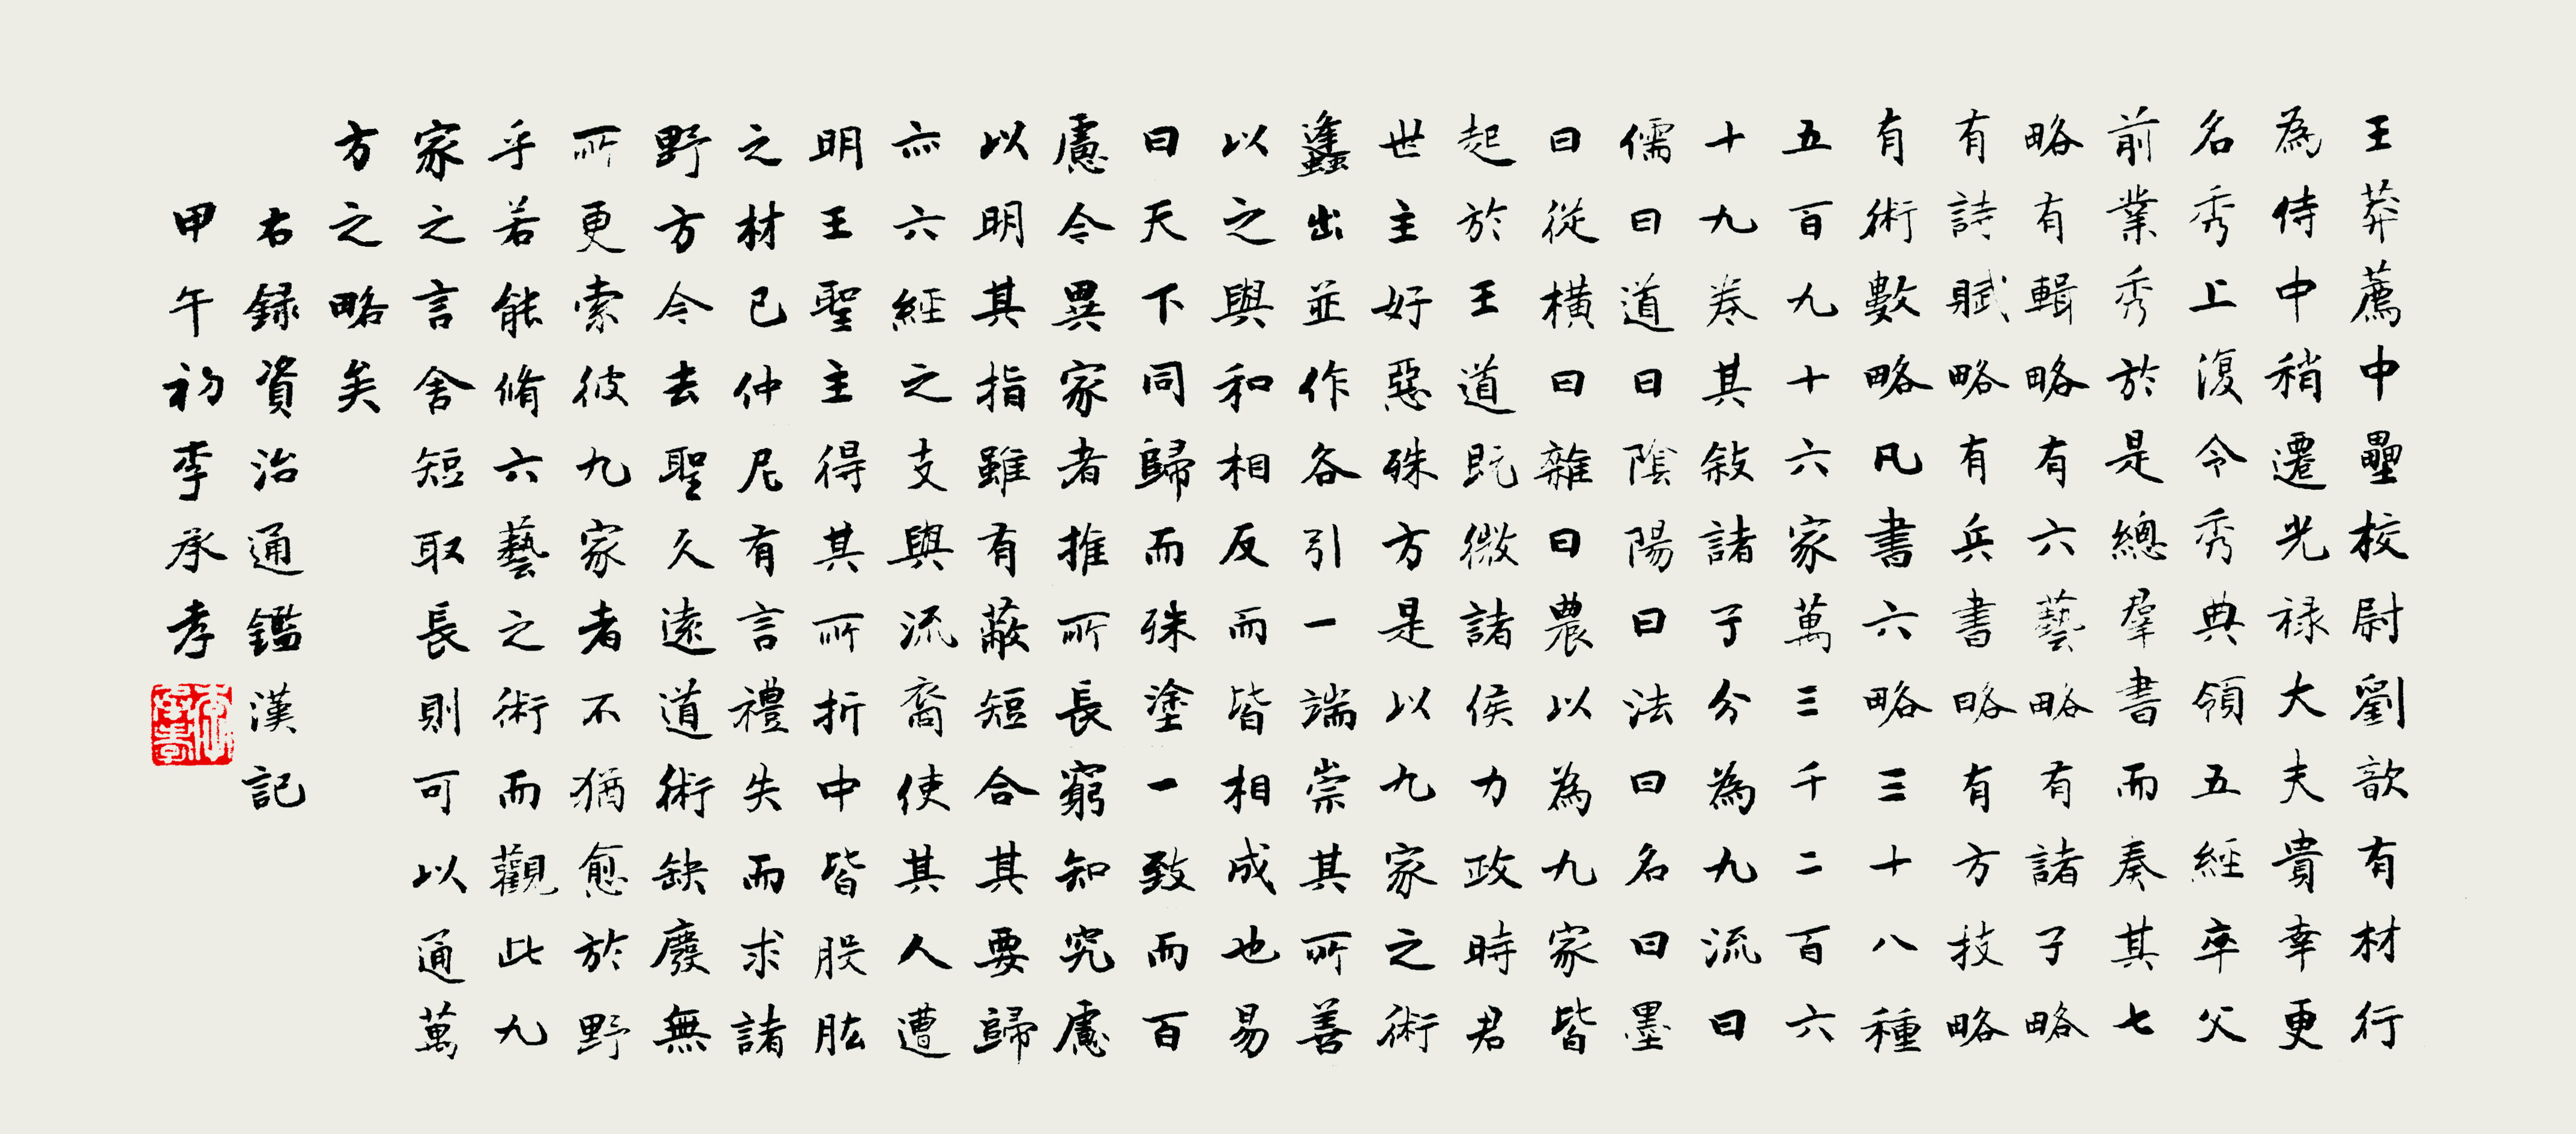 王莽薦中壘校尉劉歆有材行
為侍中稍遷光祿大夫貴幸更
名秀上復令秀典領五經卒父
前業秀於是總羣書而奏其七
略有輯略有六藝略有諸子略
有詩賦略有兵書略有方技略
有術數略凡書六略三十八種
五百九十六家萬三千二百六
十九卷其敘諸子分為九流曰
儒曰道曰陰陽曰法曰名曰墨
曰從橫曰雜曰農以為九家皆
起於王道既微諸侯力政時君
世主好惡殊方是以九家之術
蠭出並作各引一端崇其所善
以之與和相反而皆相成也易
曰天下同歸而殊塗一致而百
慮今異家者推所長窮知究慮
以明其指雖有蔽短合其要歸
亦六經之支與流裔使其人遭
明王聖主得其所折中皆股肱
之材已仲尼有言禮失而求諸
野方今去聖久遠道術缺廢無
所更索彼九家者不猶愈於野
乎若能脩六藝之術而觀此九
家之言舍短取長則可以通萬
方之略矣
右錄資治通鑑漢記
甲午初李承孝